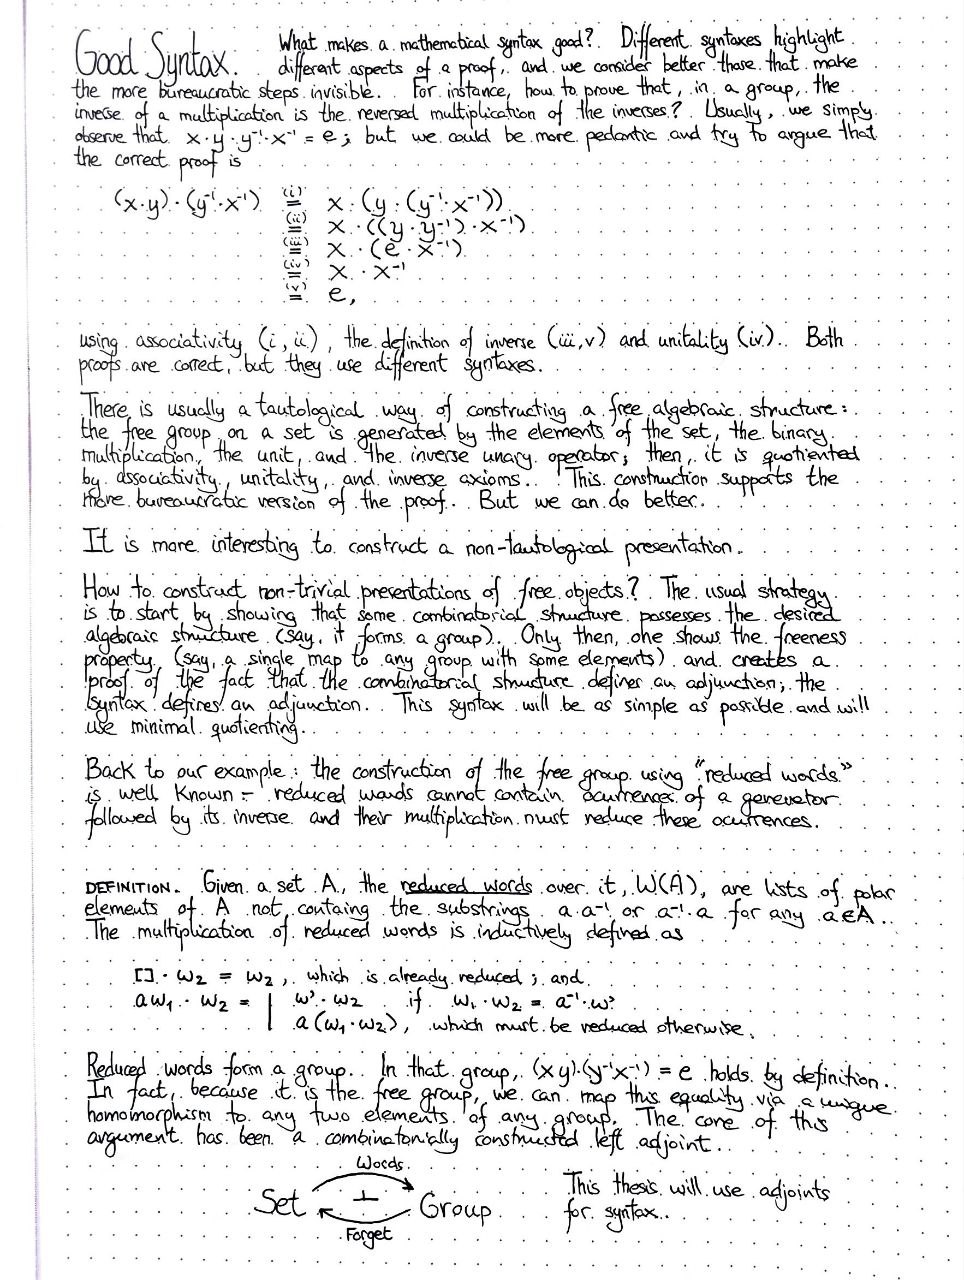 Good Syntax.
What makes a mathematical syntax good? Different syntaxes highlight
different aspects of a proof, and we consider better those that make
the more bureaucratic steps invisible. For instance, how to prove that, in a group, the
inverse of a multiplication is the reversed multiplication of the inverses? Usually, we simply
observe that x·y·y⁻¹·x⁻¹ = e; but we could be more pedantic and try to argue that
the correct proof is
(x·y)·(y⁻¹·x⁻¹) (i)= x·(y·(y⁻¹·x⁻¹))
(ii)= x·((y·y⁻¹)·x⁻¹)
(iii)= x·(e·x⁻¹)
(iv)= x·x⁻¹
(v)= e,
using associativity (i, ii), the definition of inverse (iii, v) and unitality (iv). Both
proofs are correct, but they use different syntaxes.
There is usually a tautological way of constructing a free algebraic structure:
the free group on a set is generated by the elements of the set, the binary
multiplication, the unit, and the inverse unary operator; then, it is quotiented
by associativity, unitality, and inverse axioms. This construction supports the
more bureaucratic version of the proof. But we can do better.
It is more interesting to construct a non-tautological presentation.
How to construct non-trivial presentations of free objects? The usual strategy
is to start by showing that some combinatorial structure possesses the desired
algebraic structure (say, it forms a group). Only then, one shows the freeness
property (say, a single map to any group with some elements) and creates a
proof of the fact that the combinatorial structure defines an adjunction; the
syntax defines an adjunction. This syntax will be as simple as possible and will
use minimal quotienting.
Back to our example: the construction of the free group using "reduced words"
is well known - reduced words cannot contain ocurrences of a generator
followed by its inverse and their multiplication must reduce these ocurrences.
DEFINITION. Given a set A, the reduced words over it, W(A), are lists of polar
elements of A not containg the substrings a·a⁻¹ or a⁻¹·a for any a∈A.
The multiplication of reduced words is inductively defined as
[]·w₂ = w₂, which is already reduced; and
aw₁·w₂ = | w'·w₂ if w₁·w₂ = a⁻¹·w'
a(w₁·w₂), which must be reduced otherwise.
Reduced words form a group. In that group, (xy)·(y⁻¹x⁻¹) = e holds by definition.
In fact, because it is the free group, we can map this equality via a unique
homomorphism to any two elements of any group. The core of this
argument has been a combinatorially constructed left adjoint.
Words
Set ⊥ Group
Forget
This thesis will use adjoints
for syntax.